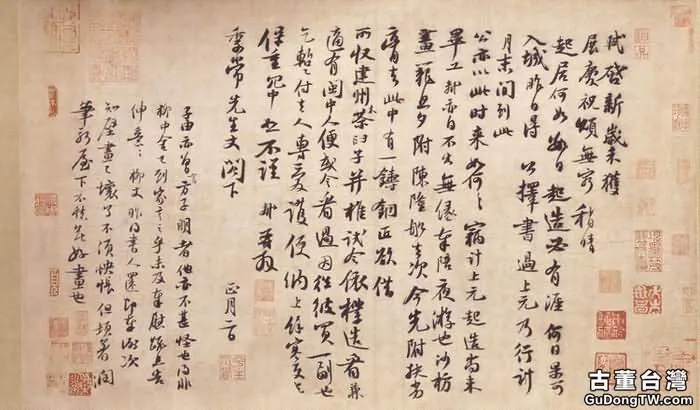 軾啓新歲未獲
展慶祝頌無窮稍晴
起居何如數日起造必有涯何日果可
入城昨日得公擇書過上元乃行計
月末間到此
公亦以此時來如何々竊計上元起造尚未
畢工軾亦自不出無緣奉陪夜游也沙枋
畫籠旦夕附陳隆舡去次今先附扶劣
膏去此中有一鑄銅匠欲借
所收建州木茶臼子并椎試令依樣造看兼
適有閩中人便或令看過因往彼買一副也
乞暫付去人專愛護便納上餘寒更乞
保重冗中恕不謹軾再拜
季常先生丈閣下
正月二日
子由亦曾言方子明者他亦不甚怪也得非
柳中舍已到家言之乎未及奉慰疏且告
伸意々柳丈昨得書人還即奉謝次
知壁畫已壞了不須怏悵但頓著潤
筆新屋下不愁無好畫也
古董台灣
GuDongTW.com